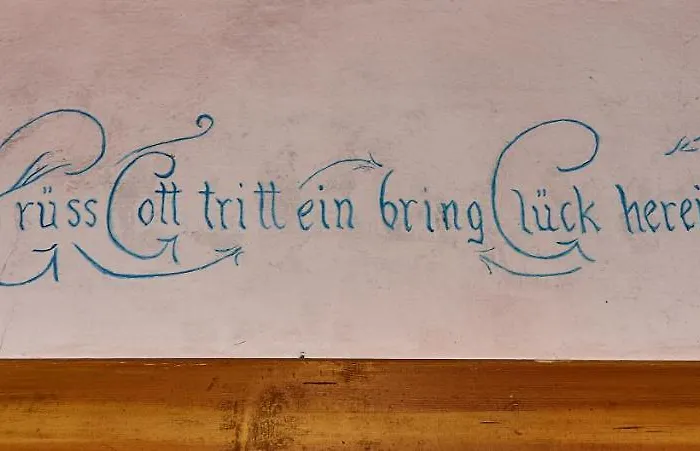 Grüss Gott tritt ein bring Glück herei